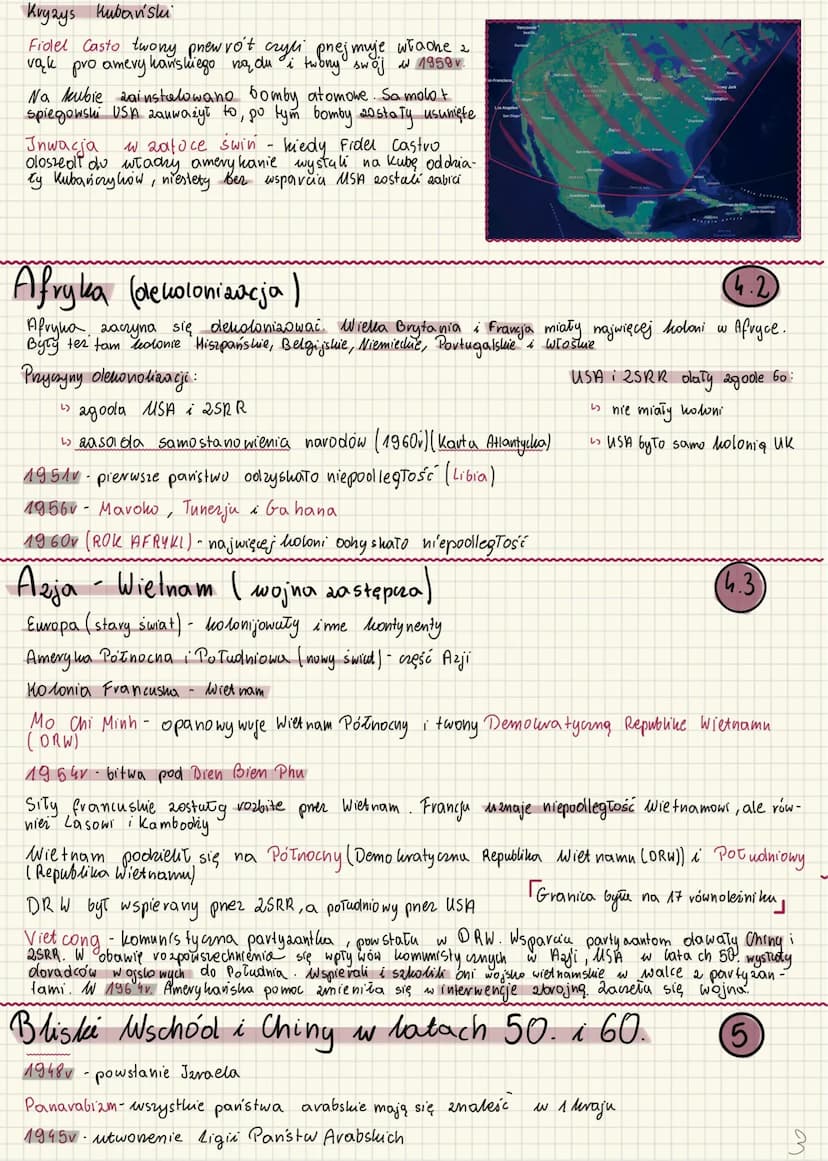 Kryzys Kubański
Fidel Casto tworzy przewrót czyli przejmuje władze z
rąk pro amerykańskiego rządu i tworzy swój w 1959r.
Na kubie zainstalowano bomby atomowe. Samolot
śpiegowski USA zauważył to, po tym bomby zostały usunięte
Inwacja w zatoce świń - kiedy Fidel Castro
doszedł do władzy amerykanie wysłali na Kubę oddzia-
ły Kubańczyków, niestety bez wsparcia USA zostali zabici
Afryka (dekolonizacja)
4.2
Afryka zaczyna się dekolonizować. Wielka Brytania i Francja miały najwięcej koloni w Afryce.
Były też tam kolonie Hiszpańskie, Belgijskie, Niemieckie, Portugalskie i Włoskie
Przyczyny dekonolizacji:
↳ zgoda USA i ZSRR
↳ zasada samostanowienia narodów (1960r)(Karta Atlantycka)
USA i ZSRR dały zgode bo:
↳ nie miały koloni
↳ USA było samo kolonią UK
1951r - pierwsze państwo odzyskało niepodległość (Libia)
1956r - Maroko, Tunezja i Gahana
1960r (ROK AFRYKI) - najwięcej koloni odzyskało niepodległość
Azja - Wietnam (wojna zastępcza)
4.3
Europa (stary świat) - kolonizowały inne kontynenty
Ameryka Północna i Południowa (nowy świat) - część Azji
Kolonia Francuska - Wietnam
Mo Chi Minh - opanowywuje Wietnam Północny i tworzy Demokratyczną Republike Wietnamu
(DRW)
1954r - bitwa pod Dien Bien Phu
Siły francuskie zostały rozbite przez Wietnam. Francja uznaje niepodległość Wietnamowi, ale rów-
nież Lasowi i Kambodży
Wietnam podzielił się na Północny (Demokratyczna Republika Wietnamu (DRW)) i Południowy
(Republika Wietnamu)
DRW był wspierany przez ZSRR, a południowy przez USA
Granica była na 17 równoleżniku
Viet cong - komunistyczna partyzantka, powstała w DRW. Wsparcia partyzantom dawały Chiny i
ZSRR. W obawie rozpowszechnienia się wpływów komunistycznych w Azji, USA w latach 50. wysłały
doradców wojskowych do Południa. Wspierali i szkolili oni wojsko wietnamskie w walce z partyzan-
tami. W 1964r. Amerykańska pomoc zmieniła się w interwencje zbrojną. Zaczęła się wojna.
Bliski Wschód i Chiny w latach 50. i 60.
5
1948r - powstanie Izraela
Panarabizm - wszystkie państwa arabskie mają się znaleść w 1 kraju
1945r - utworzenie Ligii Państw Arabskich
3